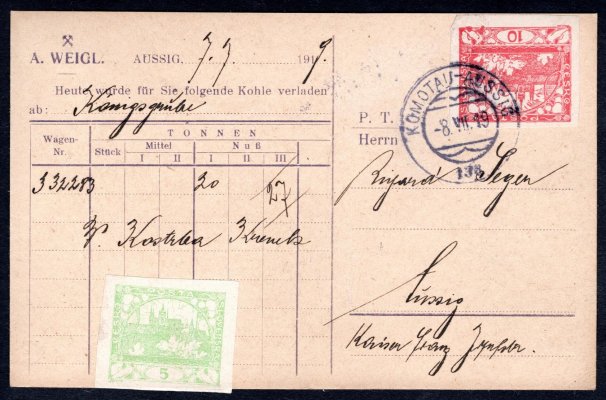 A. WEIGL.
AUSSIG, 7./7. 1919.
Heute wurde für Sie folgende Kohle verladen
ab: Königsgrube
Wagen-Nr.
Stück
TONNEN
Mittel
Nuß
I II I II III
332283 20 27
Kostrba
5
10
KOMOTAU-AUSSIG
-8.VII.19
P. T.
Herrn
Rigard Seger
Aussig
Kaiser Franz